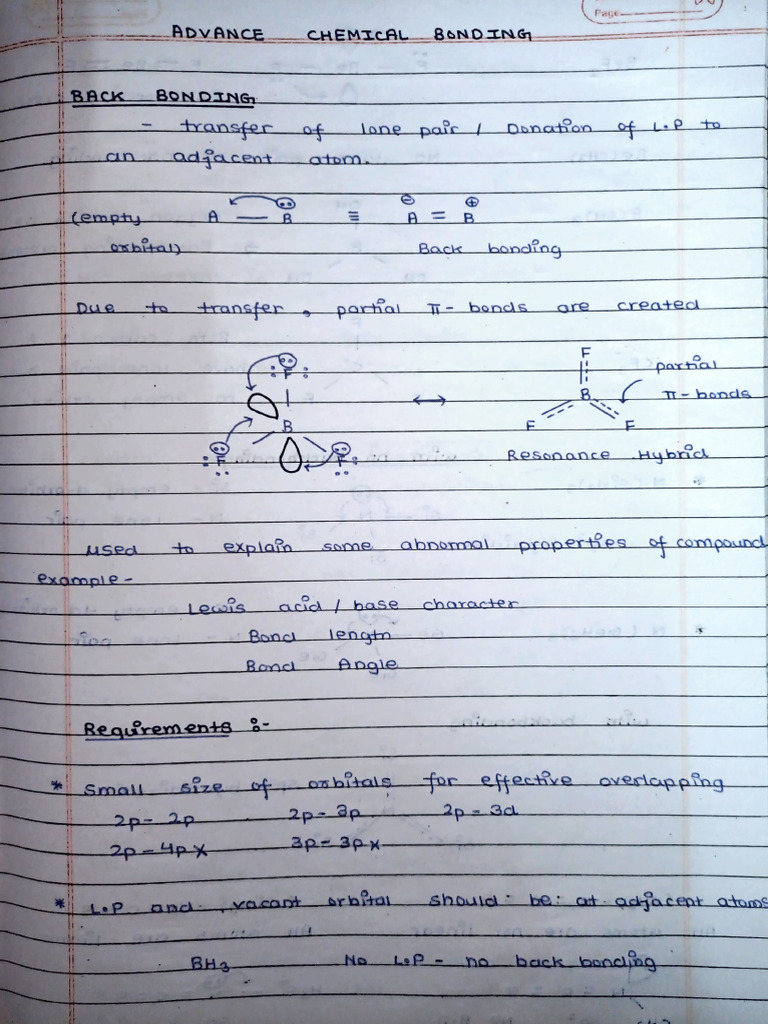 Page
ADVANCE CHEMICAL BONDING
BACK BONDING
- transfer of lone pair / Donation of L.P to
an adjacent atom.
(empty A — B ≡ A = B
orbital) Back bonding
Due to transfer, partial π-bonds are created
F F partial
B ↔ B π-bonds
F F F F
Resonance Hybrid
used to explain some abnormal properties of compound
example-
Lewis acid / base character
Bond length
Bond Angle
Requirements :-
* Small size of orbitals for effective overlapping
2p - 2p 2p - 3p 2p - 3d
2p - 4p x 3p - 3p x
* L.P and vacant orbital should be at adjacent atoms
BH₃ No L.P - no back bonding